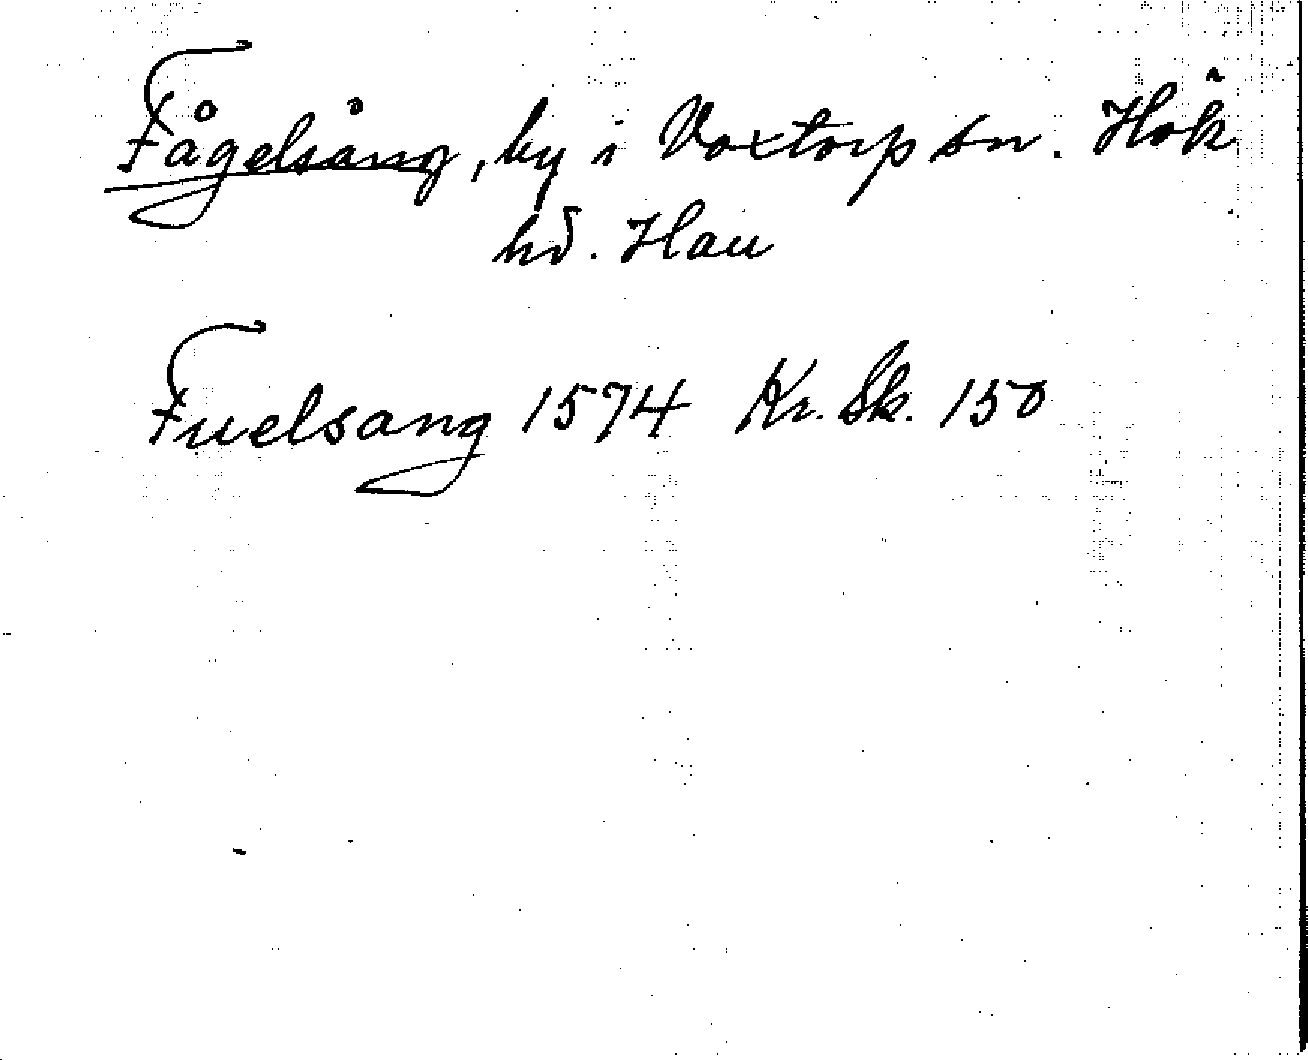 Fågelsång, by i Voxtorp sn. Hök
hd. Hall
Fuelsang 1574 Kr. Sk. 150